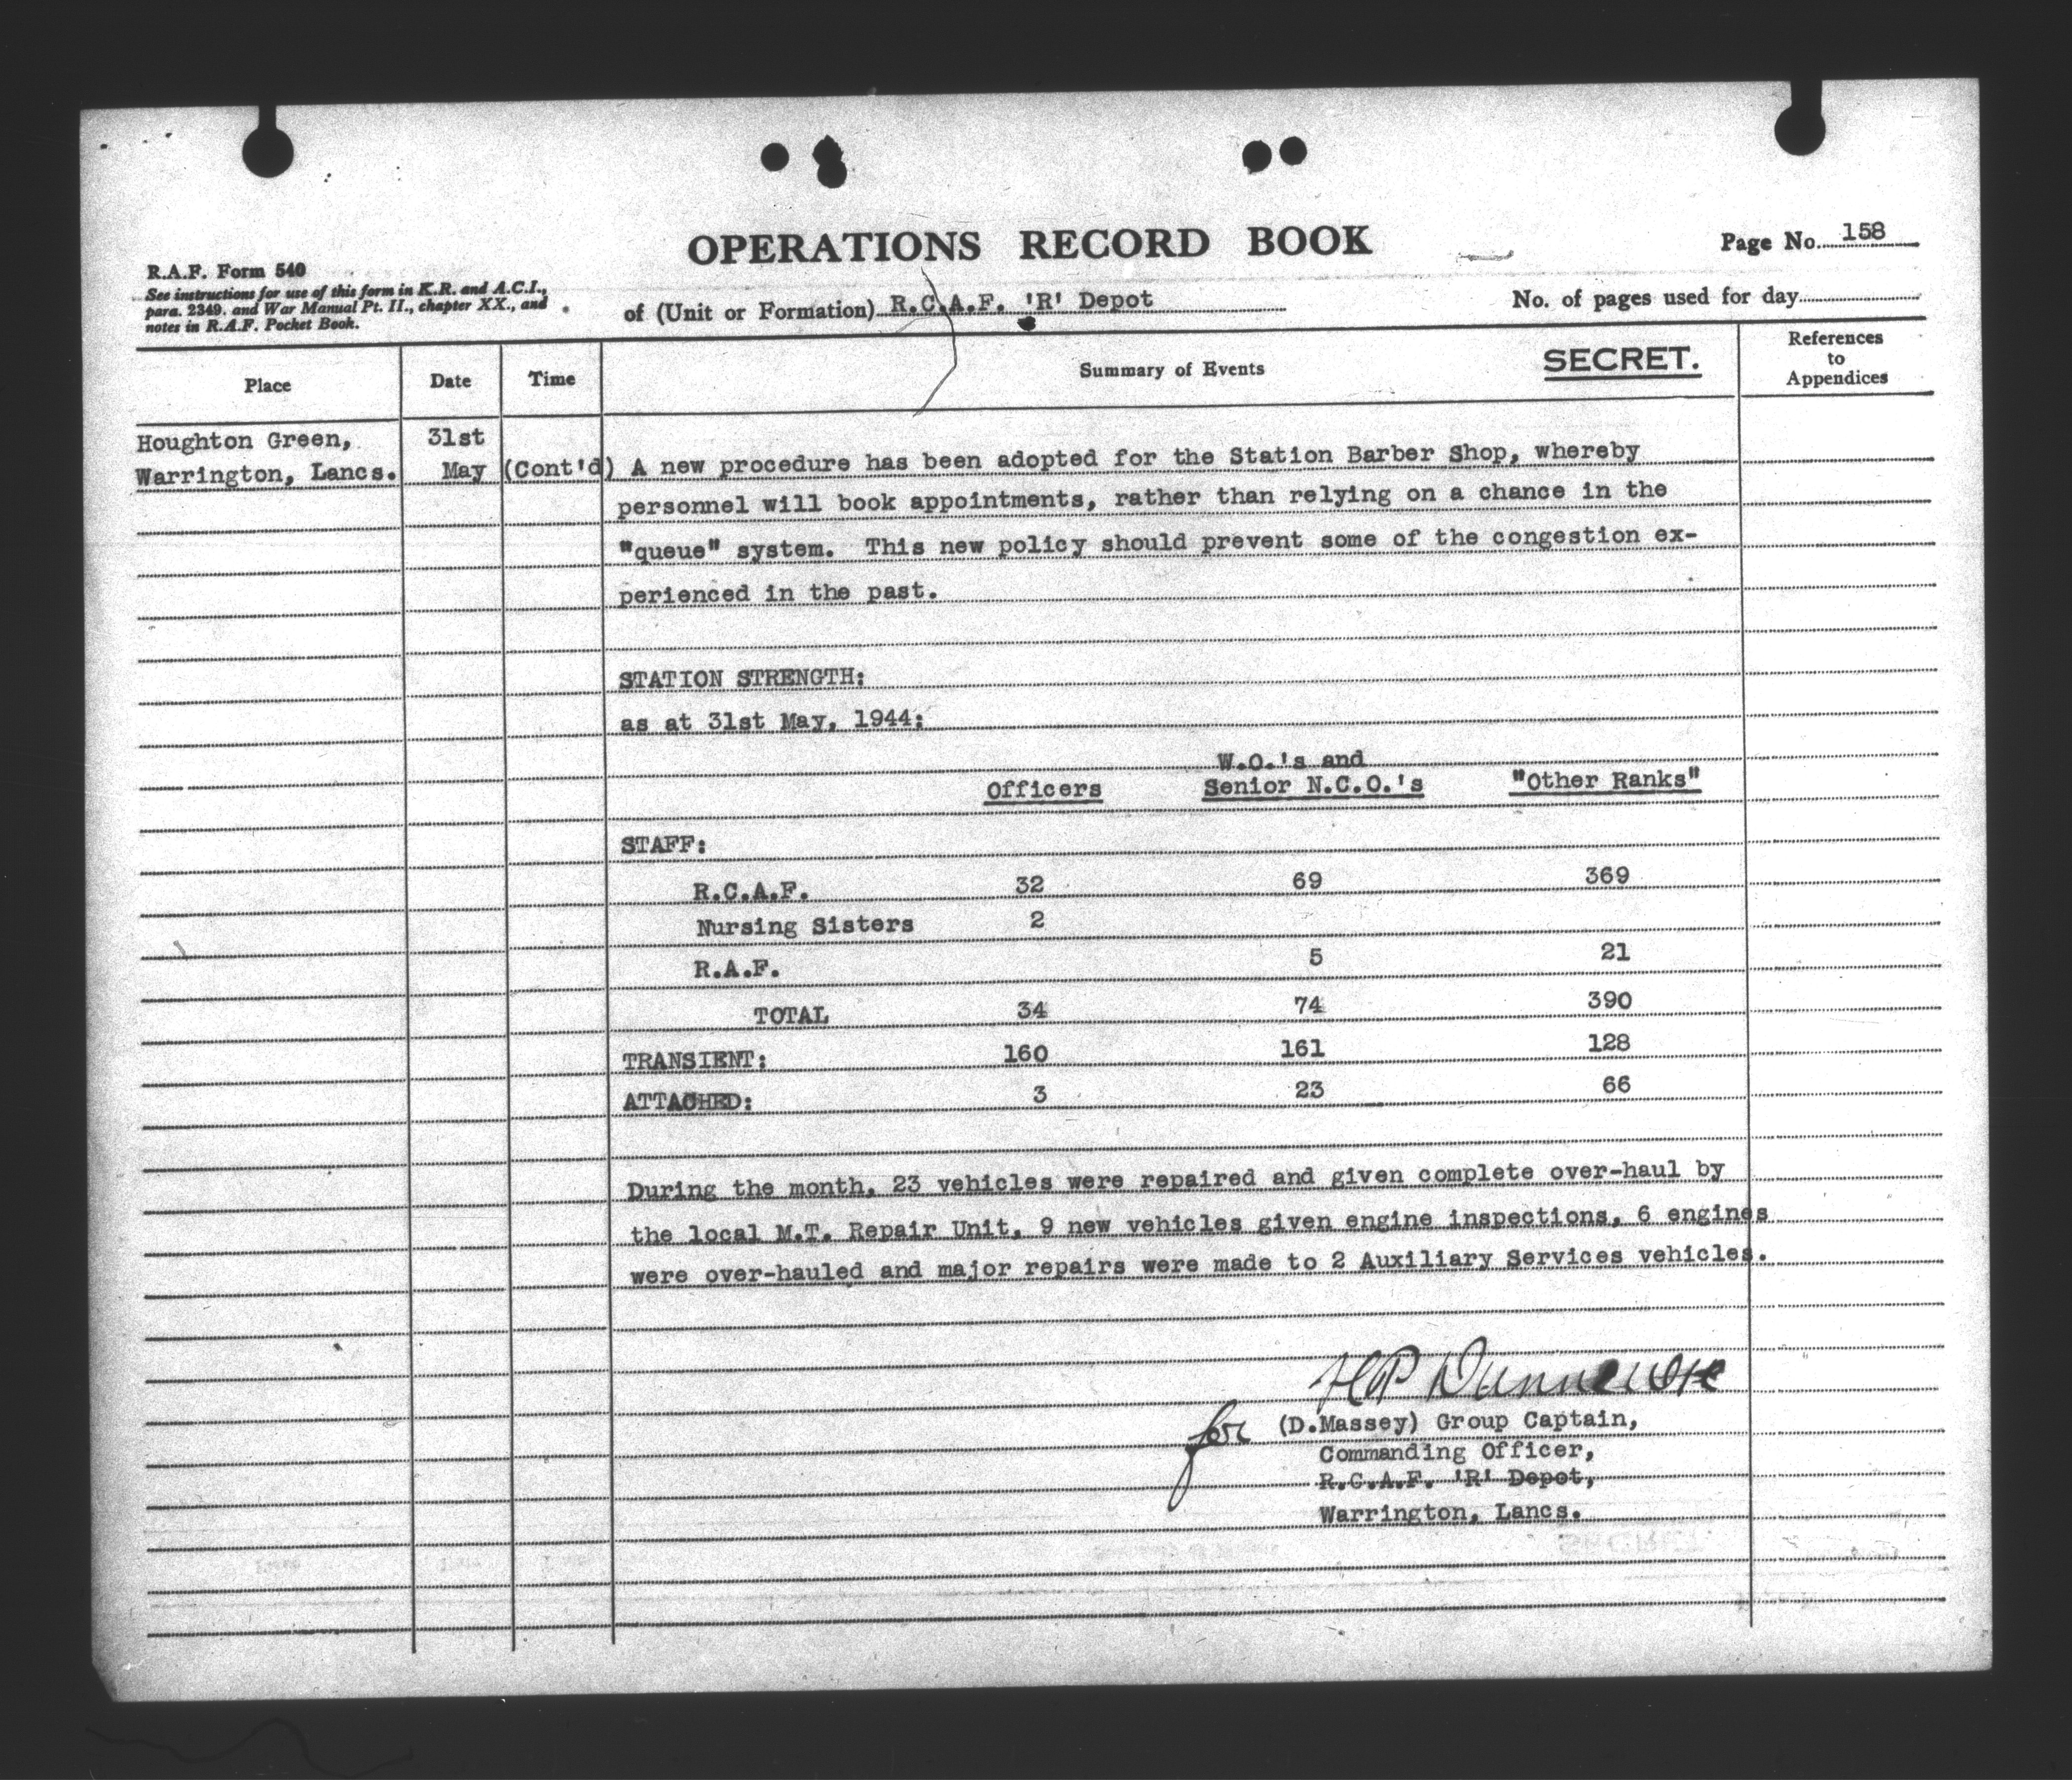 OPERATIONS RECORD BOOK
Page No. 158
R.A.F. Form 540
See instructions for use of this form in K.R. and A.C.I.,
para. 2349, and War Manual Pt. II., chapter XX., and
notes in R.A.F. Pocket Book.
of (Unit or Formation) R.C.A.F. 'R' Depot
No. of pages used for day
Place Date Time Summary of Events SECRET. References
to
Appendices
Houghton Green, 31st
Warrington, Lancs. May (Cont'd) A new procedure has been adopted for the Station Barber Shop, whereby
personnel will book appointments, rather than relying on a chance in the
"queue" system. This new policy should prevent some of the congestion ex-
perienced in the past.
STATION STRENGTH:
as at 31st May, 1944:
W.O.'s and
Officers Senior N.C.O.'s "Other Ranks"
STAFF:
R.C.A.F. 32 69 369
Nursing Sisters 2
R.A.F. 5 21
TOTAL 34 74 390
TRANSIENT: 160 161 128
ATTACHED: 3 23 66
During the month, 23 vehicles were repaired and given complete over-haul by
the local M.T. Repair Unit, 9 new vehicles given engine inspections, 6 engines
were over-hauled and major repairs were made to 2 Auxiliary Services vehicles.
for (D.Massey) Group Captain,
Commanding Officer,
R.C.A.F. 'R' Depot,
Warrington, Lancs.